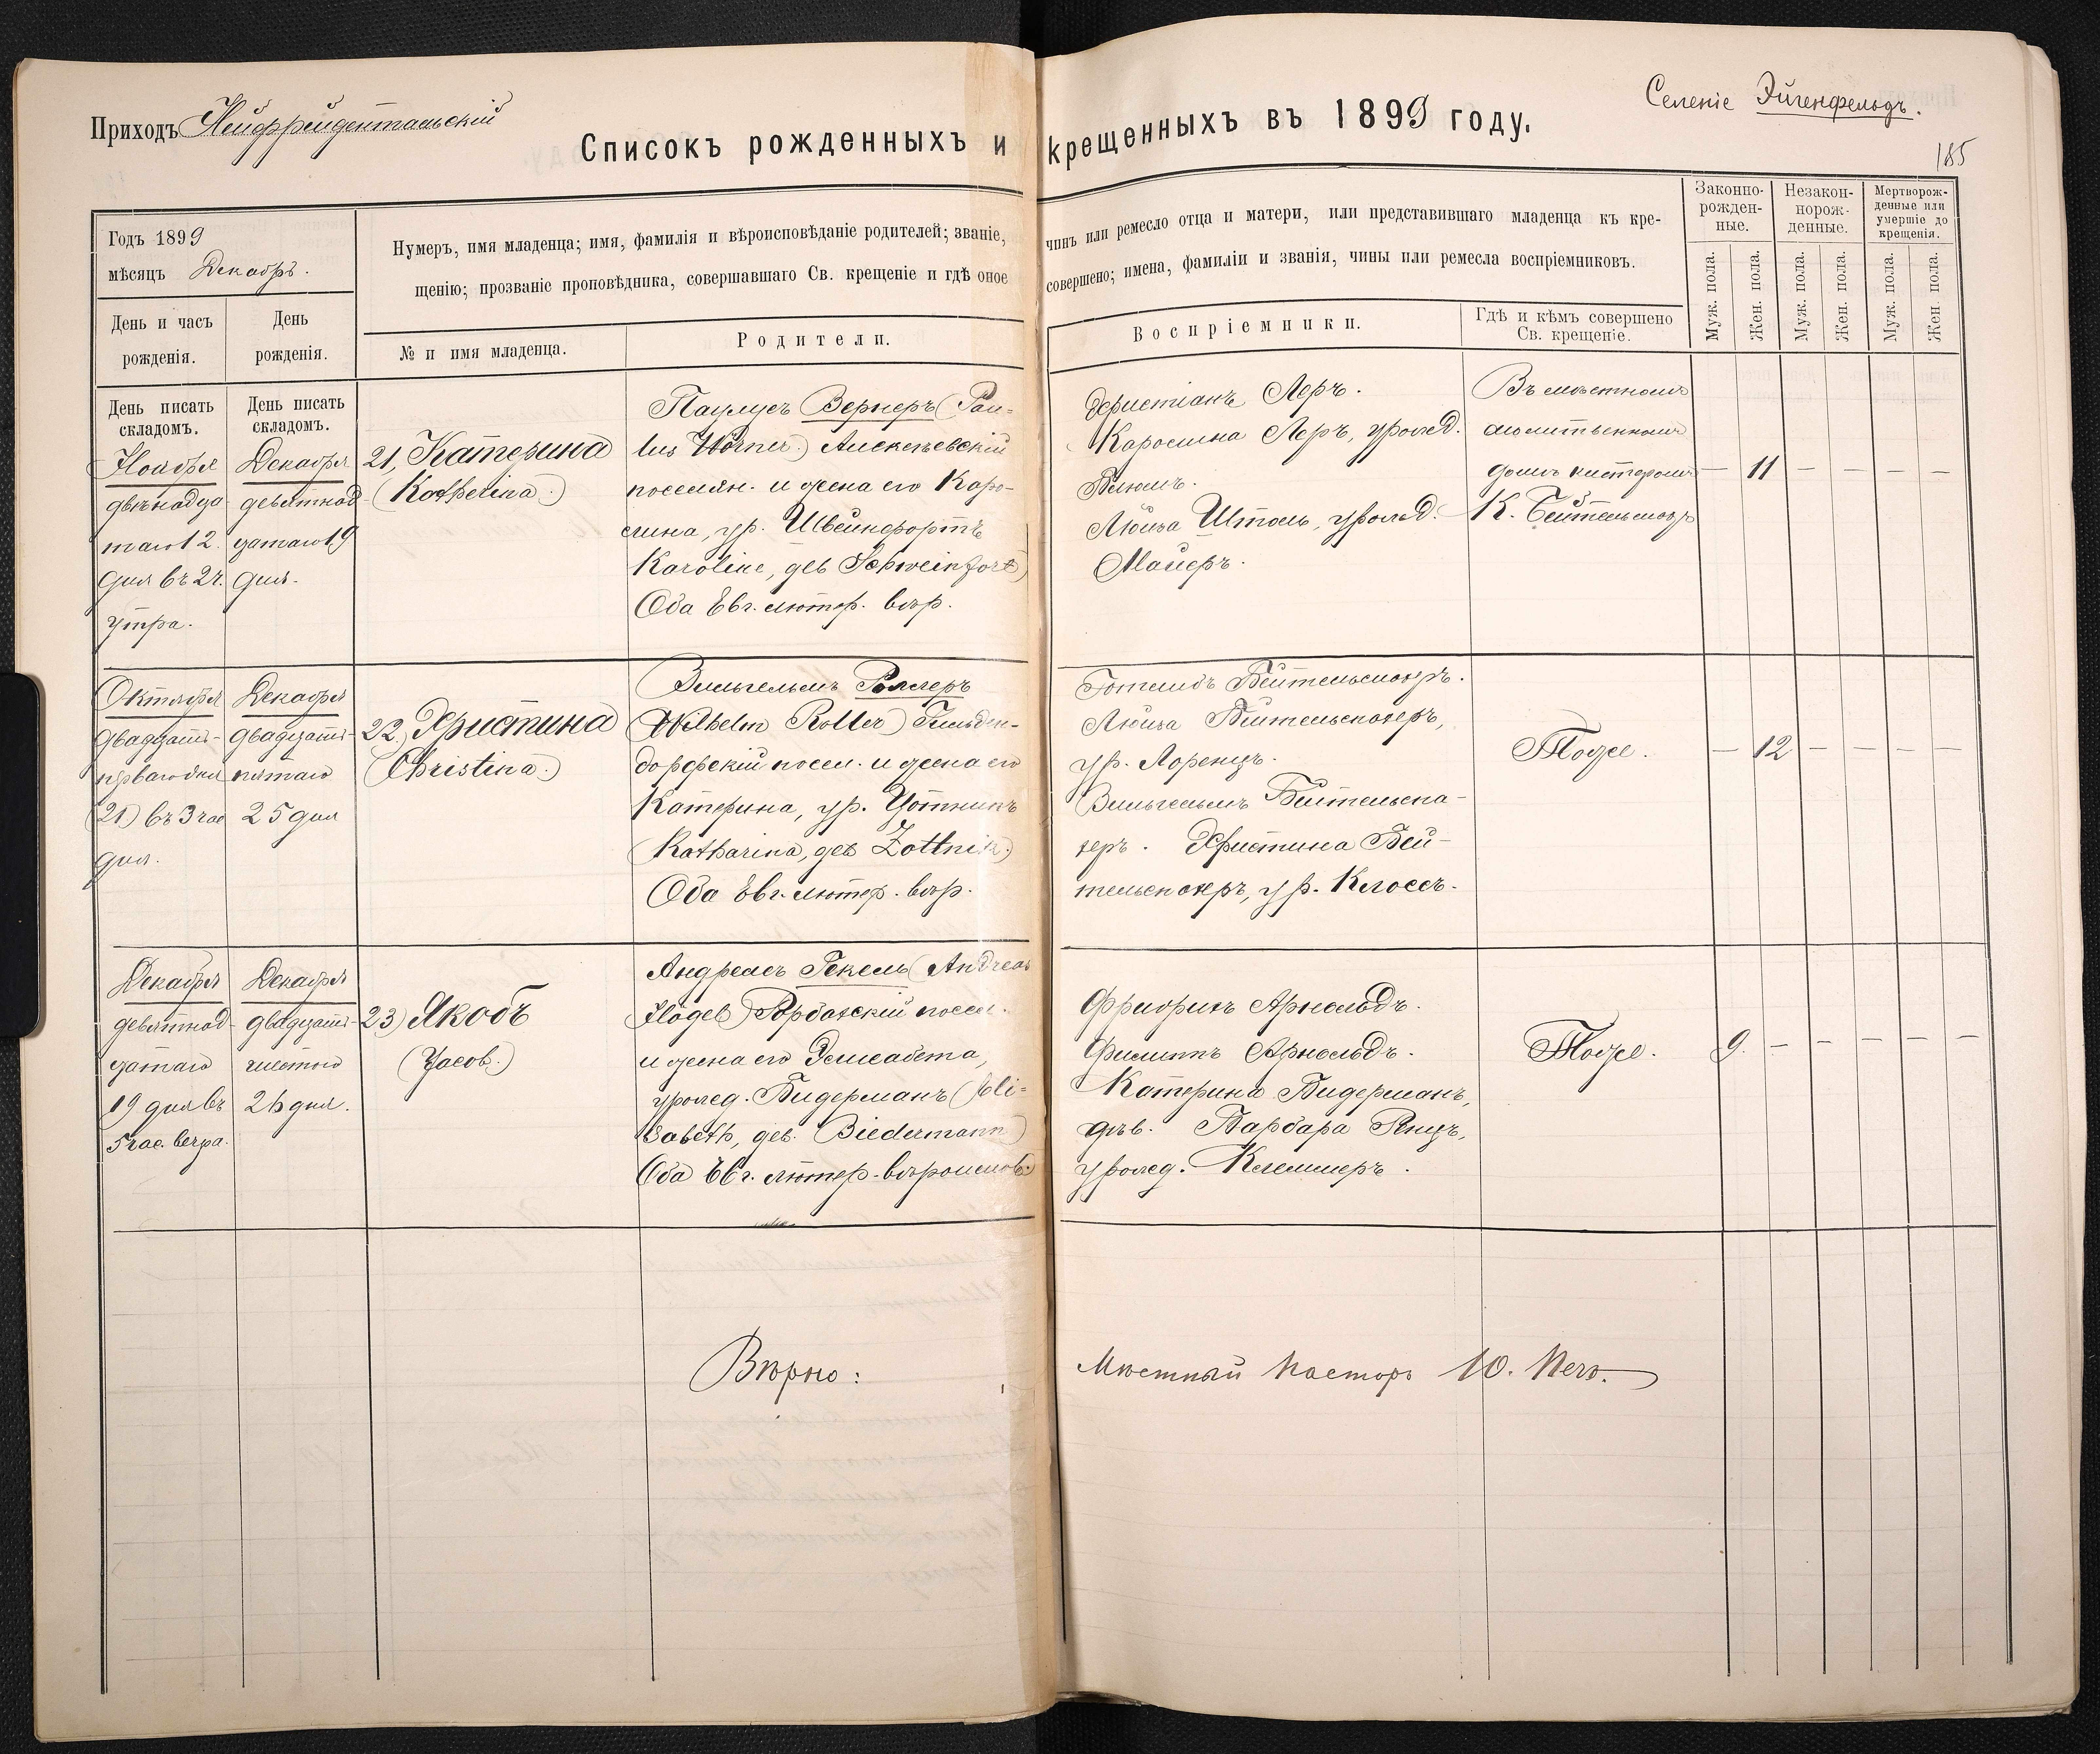 Приходъ Нейфрейдентальскій
Селеніе Эйгенфельдъ.
Списокъ рожденныхъ и крещенныхъ въ 1899 году.
185
Годъ 1899
мѣсяцъ Декабрь.
Нумеръ, имя младенца; имя, фамилія и вѣроисповѣданіе родителей; званіе, чинъ или ремесло отца и матери, или представившаго младенца къ кре-
щенію; прозваніе проповѣдника, совершавшаго Св. крещеніе и гдѣ оное совершено; имена, фамиліи и званія, чины или ремесла воспріемниковъ.
Законно-
рожден-
ные.
Незакон-
норож-
денные.
Мертворож-
денные или
умершіе до
крещенія.
День и часъ
рожденія.
День
рожденія.
№ и имя младенца.
Родители.
Воспріемники.
Гдѣ и кѣмъ совершено
Св. крещеніе.
Муж. пола.
Жен. пола.
Муж. пола.
Жен. пола.
Муж. пола.
Жен. пола.
День писать
складомъ.
Ноября
двѣнадца
таго 12.
дня въ 2 ч.
утра.
День писать
складомъ.
Декабря
девятнад
цатаго 19
дня.
21, Катерина
(Katherina.)
Паулусъ Вернеръ (Pau-
lus Wörner.)
поселян. и жена его Каро-
лина, ур. Швейнфортъ
Karoline, geb Schweinfort)
Оба Евг. лютер. вѣр.
Христіанъ Леръ.
Каролина Леръ, урожд.
Блюмъ.
Люиза Штоль, урожд.
Майеръ.
Въ мѣстномъ
молитвенномъ
домѣ кистеромъ
К. Бейтельспахръ
— 11 — — — —
Октября
двадцать-
перваго дня
21) въ 3 час
дня.
Декабря
двадцать-
пятаго
25 дня
22, Христина
(Christina.)
Вильгельмъ Роллеръ
(Wilhelm Roller) Гильден-
дорфскій посел. и жена его
Катерина, ур. Цотникъ
(Katharina, geb Zottnik)
Оба Евг. лютер. вѣр.
Готлибъ Бейтельспахръ.
Люиза Бейтельспахеръ,
ур. Лоренцъ.
Вильгельмъ Бейтельспа-
херъ. Христина Бей-
тельспахръ, ур. Клоссъ.
Тоже.
— 12 — — — —
Декабря
девятнад-
цатаго
19 дня въ
5 час. вечра.
Декабря
двадцать-
шестого
26 дня.
23) Якобъ
(Jacob.)
Андреасъ Гекель (Andreas
Högel) Рорбахскій посел.
и жена его Элисабета,
урожд. Бидерманъ (Eli-
sabeth, geb. Biedermann)
Оба Евг. лютер. вѣроиспов.)
Фридрихъ Арнольдъ.
Филиппъ Арнольдъ.
Катерина Бидерманъ,
дѣв. Барбара Ренцъ,
урожд. Клеммеръ.
Тоже.
9. — — — — —
Вѣрно:
Мѣстный пасторъ